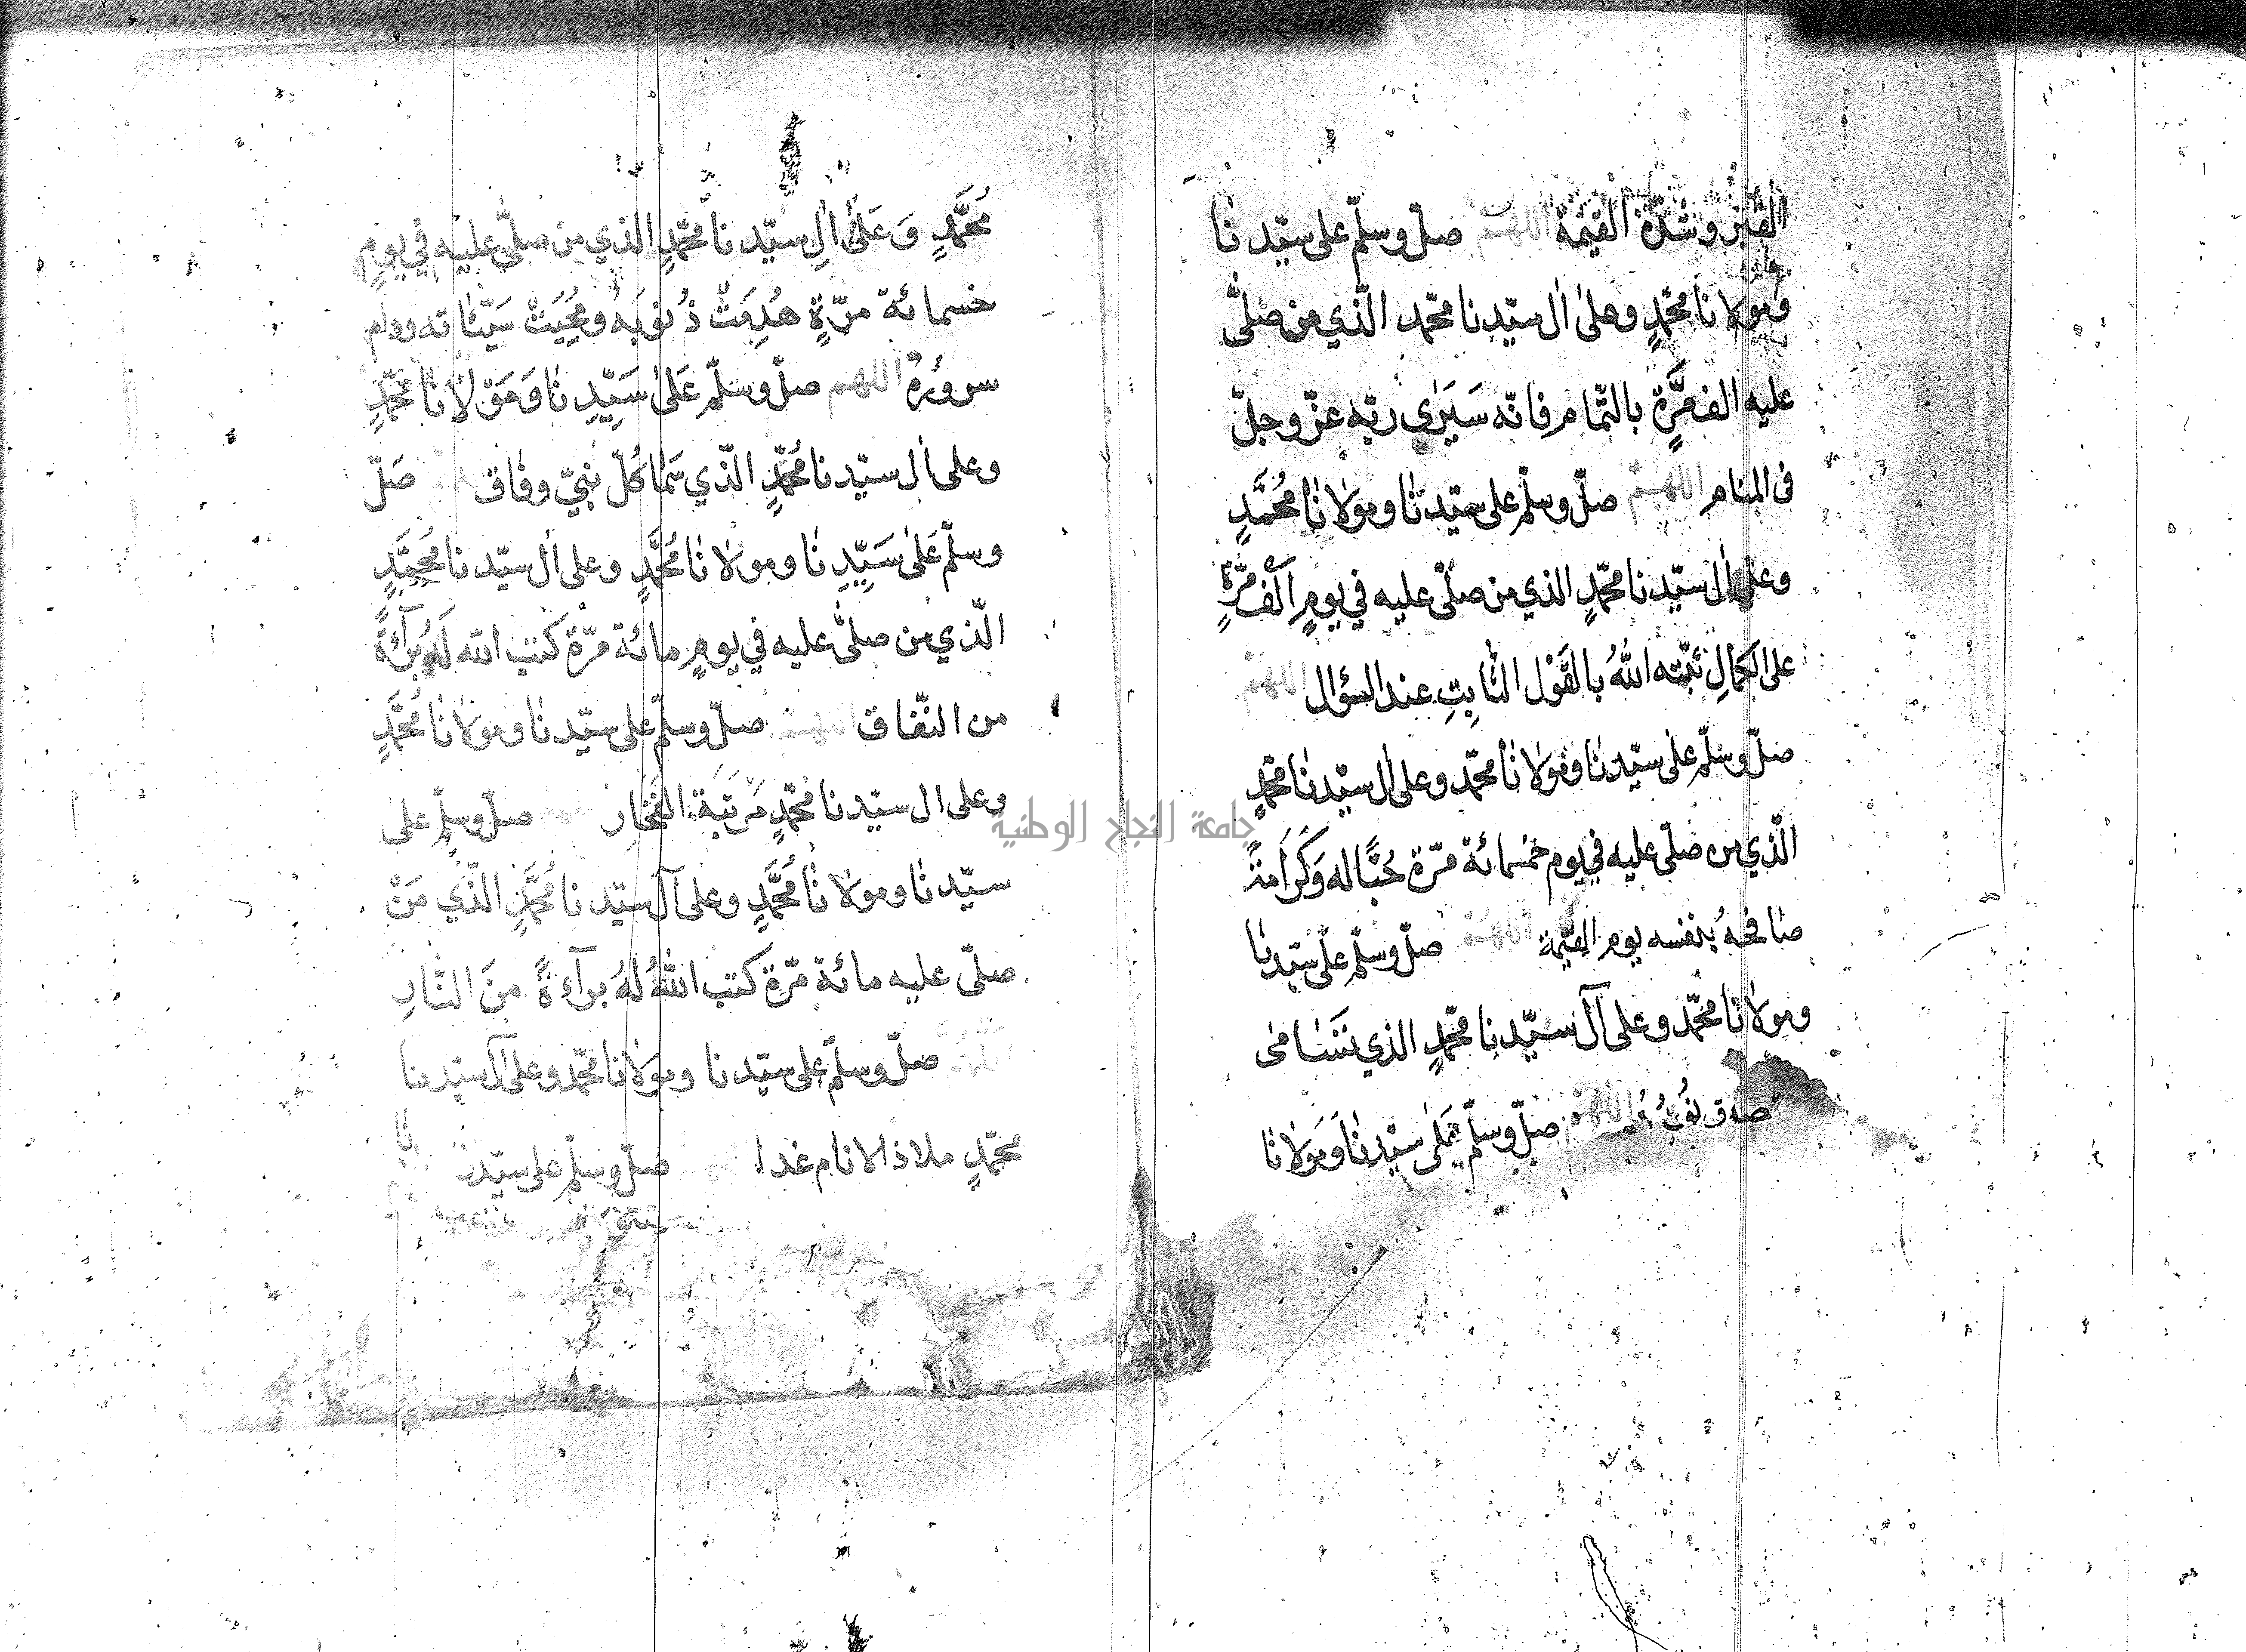 القبر وشدّة القيمة اللهمّ صلّ وسلّم على سيّدنا
ومولانا محمّدٍ وعلى اٰل سيّدنا محمّد الّذي من صلّى
عليه الف مَرَّةٍ بالتّمام فانّه سَيَرٰى ربّه عزّ وجلّ
فى المنام اللهمّ صلّ وسلّم على سيّدنا ومولانا مُحَمَّدٍ
وعلى اٰل سيّدنا محمّدٍ الذي من صلّى عليه في يومٍ اَلْفَ مَرَّةٍ
على الكمالِ ثبّته اللّٰهُ بالقَوْل الثّابِتِ عند السؤال اللهمّ
صلّ وسلّم على سيّدنا ومولانا محمّد وعلى اٰل سيّدنا محمّدٍ
الّذي من صلّى عليه في يوم خمسمائة مرّة حُبًّا له وَكَرَامَةً
صافحَهُ بنفسه يوم القيٰمة اللهمّ صلّ وسلّم على سيّدنا
ومولانا محمّد وعلى آل سيّدنا محمّدٍ الذي تَسَامى
صدق اللهمّ صلّ وسلّم على سيّدنا ومولانا
مُحَمَّدٍ وَعَلىٰ اٰلِ سيّدنا محمّدٍ الذي من صلّى عليه في يومٍ
خمسمائة مرّةٍ هُدِمَتْ ذُنوبَهُ ومُحِيَتْ سَيّئاته ودام
سرورُهُ اللهم صلّ وسلّم عَلىٰ سَيّدِنا وَمَوْلَانَا مُحَمَّدٍ
وعلى اٰل سيّدنا مُحَمَّدٍ الّذي سَمَا كُلّ نبيّ وفاق صَلّ
وسلّم عَلىٰ سَيِّدِنَا ومولانا مُحَمَّدٍ وعلى اٰل سيّدنا مُحَمَّدٍ
الّذي من صلّى عليه في يومٍ مائة مرّة كتب اللّه لَهُ بَرَآءَةً
من النّفاق اللهمّ صلّ وسلّم على سيّدنا ومولانا مُحَمَّدٍ
وعلى ال سيّدنا محمّدٍ مَرْتَبَة الفَخَار صلّ وسلّم على
سيّدنا ومولانا مُحَمَّدٍ وعلى آل سيّدنا مُحَمَّدٍ الّذي مَنْ
صلّى عليه مائة مرّة كتب اللّٰهُ لهُ برآءةً منَ النّارِ
اللهمّ صلّ وسلّم على سيّدنا ومولانا محمّد وعلى آل سيّدنا
محمّدٍ ملاذ الانام غدا صلّ وسلّم على سيّدنا
جامعة النجاح الوطنية